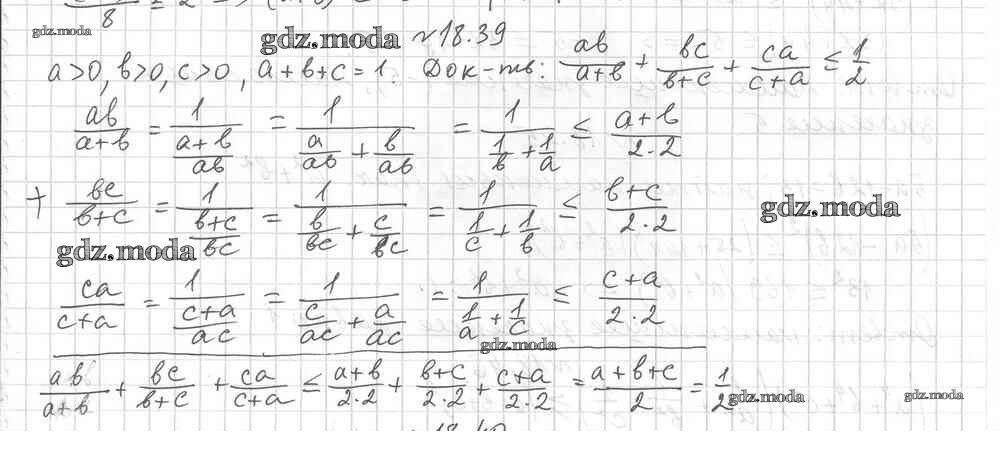 8
gdz.moda
gdz.moda №18.39
a>0, b>0, c>0, a+b+c=1. Док-ть: ab/(a+b) + bc/(b+c) + ca/(c+a) ≤ 1/2
ab/(a+b) = 1/((a+b)/ab) = 1/(a/ab + b/ab) = 1/(1/b + 1/a) ≤ (a+b)/(2·2)
+ bc/(b+c) = 1/((b+c)/bc) = 1/(b/bc + c/bc) = 1/(1/c + 1/b) ≤ (b+c)/(2·2)
gdz.moda
gdz.moda
ca/(c+a) = 1/((c+a)/ac) = 1/(c/ac + a/ac) = 1/(1/a + 1/c) ≤ (c+a)/(2·2)
gdz.moda
ab/(a+b) + bc/(b+c) + ca/(c+a) ≤ (a+b)/(2·2) + (b+c)/(2·2) + (c+a)/(2·2) = (a+b+c)/2 = 1/2
gdz.moda
gdz.moda